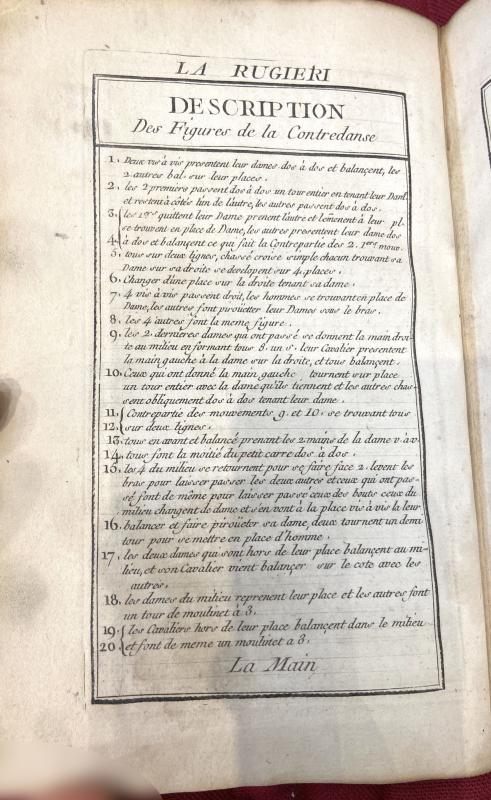 LA RUGIERI
DESCRIPTION
Des Figures de la Contredanse
1. Deux vis à vis presentent leur dames dos à dos et balançent, les
2 autres bal. sur leur places.
2. les 2 premiers passent dos à dos un tour entier en tenant leur Dam.
et restent à côtés l'un de l'autre, les autres passent dos à dos.
3. les 1ers quittent leur Dame prenent l'autre et lemenent à leur pl.
se trouvent en place de Dame, les autres presentent leur dame dos
4. à dos et balançent ce qui fait la Contrepartie des 2. 1ers mouv.
5. tous sur deux lignes, chassé croisé simple chacun trouvant sa
Dame sur sa droite se developent sur 4. places.
6. Changer d'une place sur la droite tenant sa dame.
7. 4 vis à vis passent droit, les hommes se trouvant en place de
Dame, les autres font piroüetter leur Dames sous le bras.
8. les 4 autres font la meme figure.
9. les 2. dernieres dames qui ont passé se donnent la main droi-
te au milieu en formant tous 8. un S. leur Cavalier presentent
la main gauche à la dame sur la droite, et tous balançent.
10. Ceux qui ont donné la main gauche tournent sur place
un tour entier avec la dame qu'ils tiennent et les autres chas-
sent obliquement dos à dos tenant leur dame.
11. Contrepartie des mouvements 9. et 10. se trouvant tous
12. sur deux lignes.
13. tous en avant et balancé prenant les 2 mains de la dame v. à v.
14. tous font la moitié du petit carré dos à dos.
15. les 4 du milieu se retournent pour se faire face 2. levent les
bras pour laisser passer les deux autres et ceux qui ont pas-
sé font de même pour laisser passe ceux des bouts ceux du
milieu changent de dame et s'en vont à la place vis à vis la leur
16. balancer et faire piroüeter sa dame, deux tournent un demi
tour pour se mettre en place d'homme.
17. les deux dames qui sont hors de leur place balançent au mi-
lieu, et son Cavalier vient balançer sur le cote avec les
autres.
18. les dames du milieu reprenent leur place et les autres font
un tour de moulinet à 3.
19. les Cavaliers hors de leur place balançent dans le milieu
20. et font de meme un moulinet a 3.
La Main